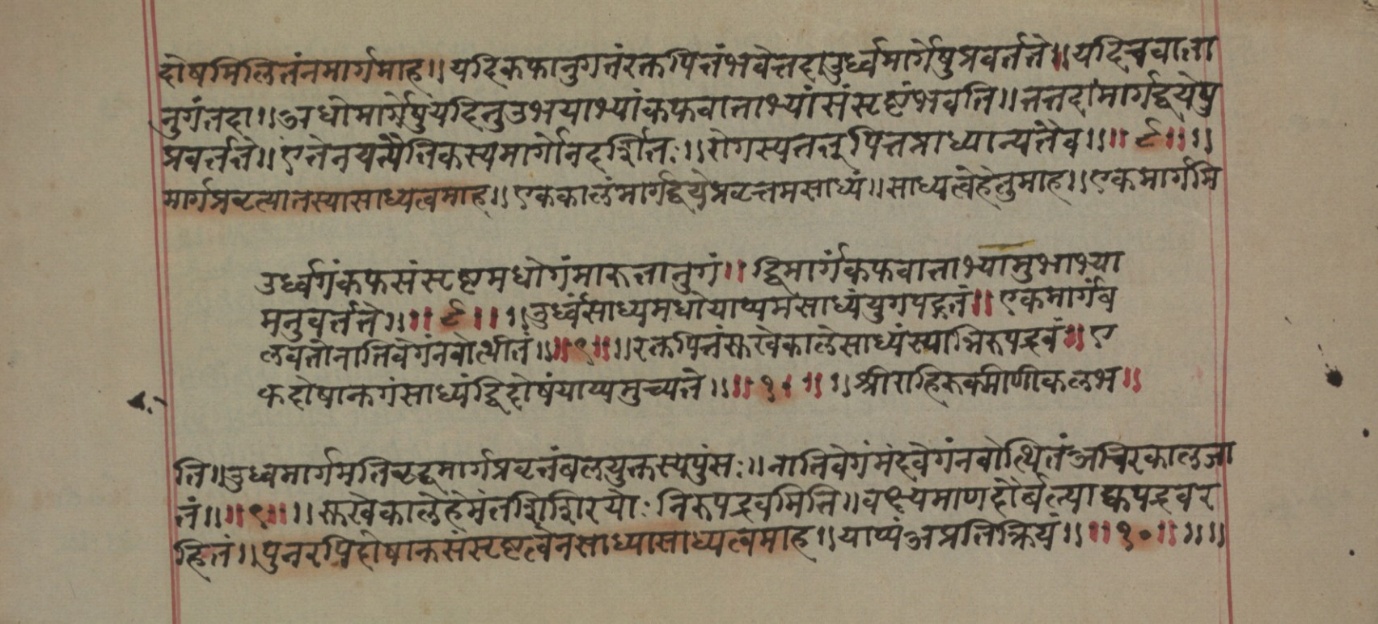 दोषमिलितंनमार्गमाह॥ यदिकफानुगतंरक्तपित्तंभवेत्तदाउर्ध्वमार्गेषुप्रवर्त्तते॥ यदिचवाता
नुगंतदा॥ अधोमार्गेषुयदितुउभयाभ्यांकफवाताभ्यांसंसृष्टंभवति॥ तत्तदामार्गद्वयेषु
प्रवर्त्तते॥ एतेन मार्गोनदर्शितः॥ रोगस्य ॥॥८॥॥
मार्गप्रवृत्यातस्यासाध्यत्वमाह॥ एककालंमार्गद्वयेप्रवृत्तमसाध्यं॥ साध्यत्वेहेतुमाह॥ एकमार्गमि
उर्ध्वगंकफसंसृष्टमधोगंमारुतानुगं॥ द्विमार्गंकफवाताभ्यामुभाभ्या
मनुवर्त्तते॥॥८॥॥ उर्ध्वंसाध्यमधोयाप्यमसाध्यंयुगपद्गतं॥ एकमार्गंब
लवतोनातिवेगंनवोत्थीतं॥॥९॥॥ रक्तपित्तंसुखेकालेसाध्यंस्यान्निरुपद्रवं॥ ए
कदोषानुगंसाध्यंद्विदोषंयाप्यमुच्यते॥॥१०॥॥ श्रीराहिरुक्मीणीकलभ॥
ति॥ उर्ध्वमार्गमति प्रवृत्तंबलयुक्तस्यपुंसः॥ नातिवेगंमंदवेगंनवोत्थितंअचिरकालजा
तं॥॥९॥॥ सुखेकालेहेमंतशिशिरयोः निरुपद्रवमिति॥ वक्ष्यमाणदौर्बल्याद्युपद्रवर
हितं॥ पुनरपिदोषानुसंसृष्टत्वेनसाध्यासाध्यत्वमाह॥ याप्यंअप्रतिक्रियं॥॥१०॥॥॥